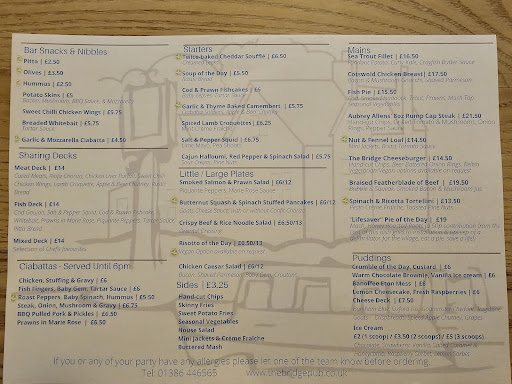 Bar Snacks & Nibbles
Pitta | £2.50
Olives | £3.50
Hummus | £2.50
Potato Skins | £5
Bacon, Mushroom, BBQ Sauce, & Mozzarella
Sweet Chilli Chicken Wings | £5.75
Breaded Whitebait | £5.75
Tartar Sauce
Garlic & Mozzarella Ciabatta | £4.50
Sharing Decks
Meat Deck | £14
Fish Deck | £14
Mixed Deck | £14
Selection of Chef's favourites
Ciabattas - Served Until 6pm
Chicken, Stuffing & Gravy | £6
Fish Fingers, Baby Gem, Tartar Sauce | £6
Roast Peppers, Baby Spinach, Hummus | £5.50
Steak, Onion, Mushroom & Gravy | £6.75
BBQ Pulled Pork & Pickles | £6.50
Prawns in Marie Rose | £6.50
Starters
Twice-baked Cheddar Souffle | £6.50
Soup of the Day | £5.50
Cod & Prawn Fishcakes | £6
Garlic & Thyme Baked Camembert | £5.75
Spiced Lamb Croquettes | £6.25
Mint Crème Fraîche
Salt & Pepper Squid | £6.75
Cajun Halloumi, Red Pepper & Spinach Salad | £5.75
Little / Large Plates
Smoked Salmon & Prawn Salad | £6/12
Piquante Peppers, Marie Rose Sauce
Butternut Squash & Spinach Stuffed Pancakes | £6/12
Crispy Beef & Rice Noodle Salad | £6.50/13
Risotto of the Day | £6.50/13
Vegan Option available on request
Chicken Caesar Salad | £6/12
Sides | £3.25
Hand-cut Chips
Skinny Fries
Sweet Potato Fries
Seasonal Vegetables
House Salad
Mini Jackets & Crème Fraîche
Buttered Mash
Mains
Sea Trout Fillet | £16.50
Cotswold Chicken Breast | £17.50
Fish Pie | £15.50
Aubrey Allens' 8oz Rump Cap Steak | £21.50
Nut & Fennel Loaf | £14.50
The Bridge Cheeseburger | £14.50
Braised Featherblade of Beef | £19.50
Spinach & Ricotta Tortellini | £13.50
"Lifesaver" Pie of the Day | £19
Puddings
Crumble of the Day, Custard | £6
Warm Chocolate Brownie, Vanilla Ice cream | £6
Banoffee Eton Mess | £6
Lemon Cheesecake, Fresh Raspberries | £6
Cheese Deck | £7.50
Ice Cream
£2 (1 scoop) / £3.50 (2 scoops) / £5 (3 scoops)
If you or any of your party have any allergies please let one of the team know before ordering.
Tel: 01386 446565 www.thebridgepub.co.uk